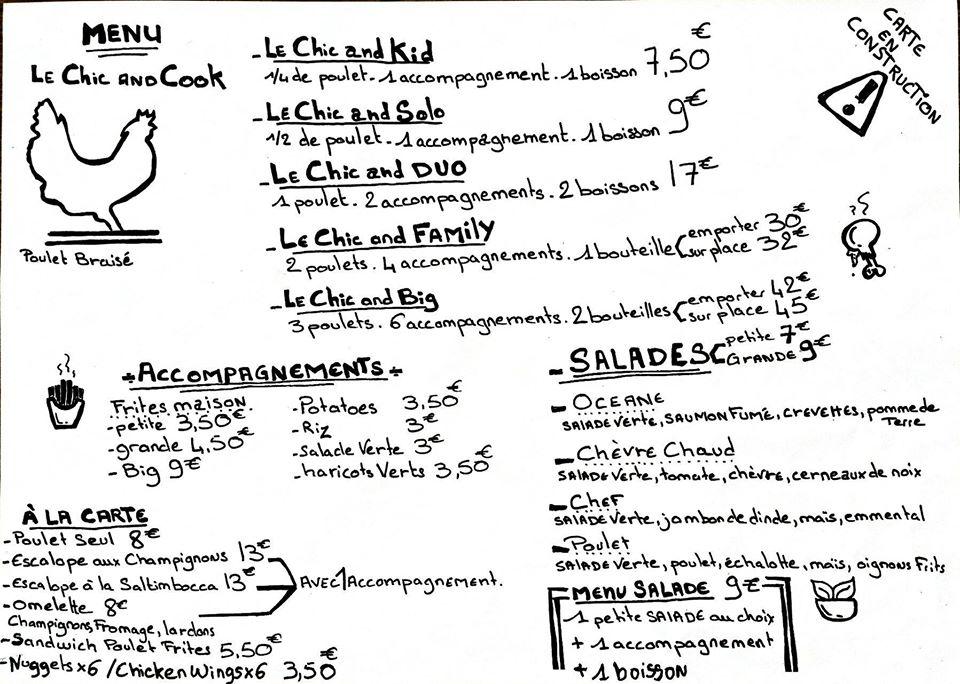 MENU
LE CHIC AND COOK
Poulet Braisé
- LE CHIC and Kid
1/4 de poulet - 1 accompagnement . 1 boisson 7,50 €
- LE CHIC and Solo
1/2 de poulet - 1 accompagnement . 1 boisson 9€
- LE CHIC and DUO
1 poulet . 2 accompagnements . 2 boissons 17€
- LE CHIC and FAMILY
2 poulets . 4 accompagnements . 1 bouteille
emporter 30€
sur place 32€
- LE CHIC and Big
3 poulets . 6 accompagnements . 2 bouteilles
emporter 42€
sur place 45€
CARTE
EN
CONSTRUCTION
ACCOMPAGNEMENTS
Frites maison
- petite 3,50€
- grande 4,50€
- Big 9€
- Potatoes 3,50€
- Riz 3€
- Salade Verte 3€
- haricots Verts 3,50€
À LA CARTE
- Poulet Seul 8€
- Escalope aux Champignons 13€
- Escalope à la Saltimbocca 13€
- Omelette 8€
Champignons, Fromage, lardons
AVEC 1 Accompagnement.
- Sandwich Poulet Frites 5,50€
- Nuggets x6 / Chicken Wings x6 3,50€
- SALADES
petite 7€
GRANDE 9€
- OCEANE
SALADE Verte, SAUMON FUMÉ, CREVETTES, pomme de
Terre
- Chèvre Chaud
SALADE Verte, tomate, chèvre, cerneaux de noix
- Chef
SALADE Verte, jambon de dinde, maïs, emmental
- Poulet
SALADE Verte, poulet, échalotte, maïs, oignons Frits
MENU SALADE 9€
1 petite SALADE au choix
+ 1 accompagnement
+ 1 boisson